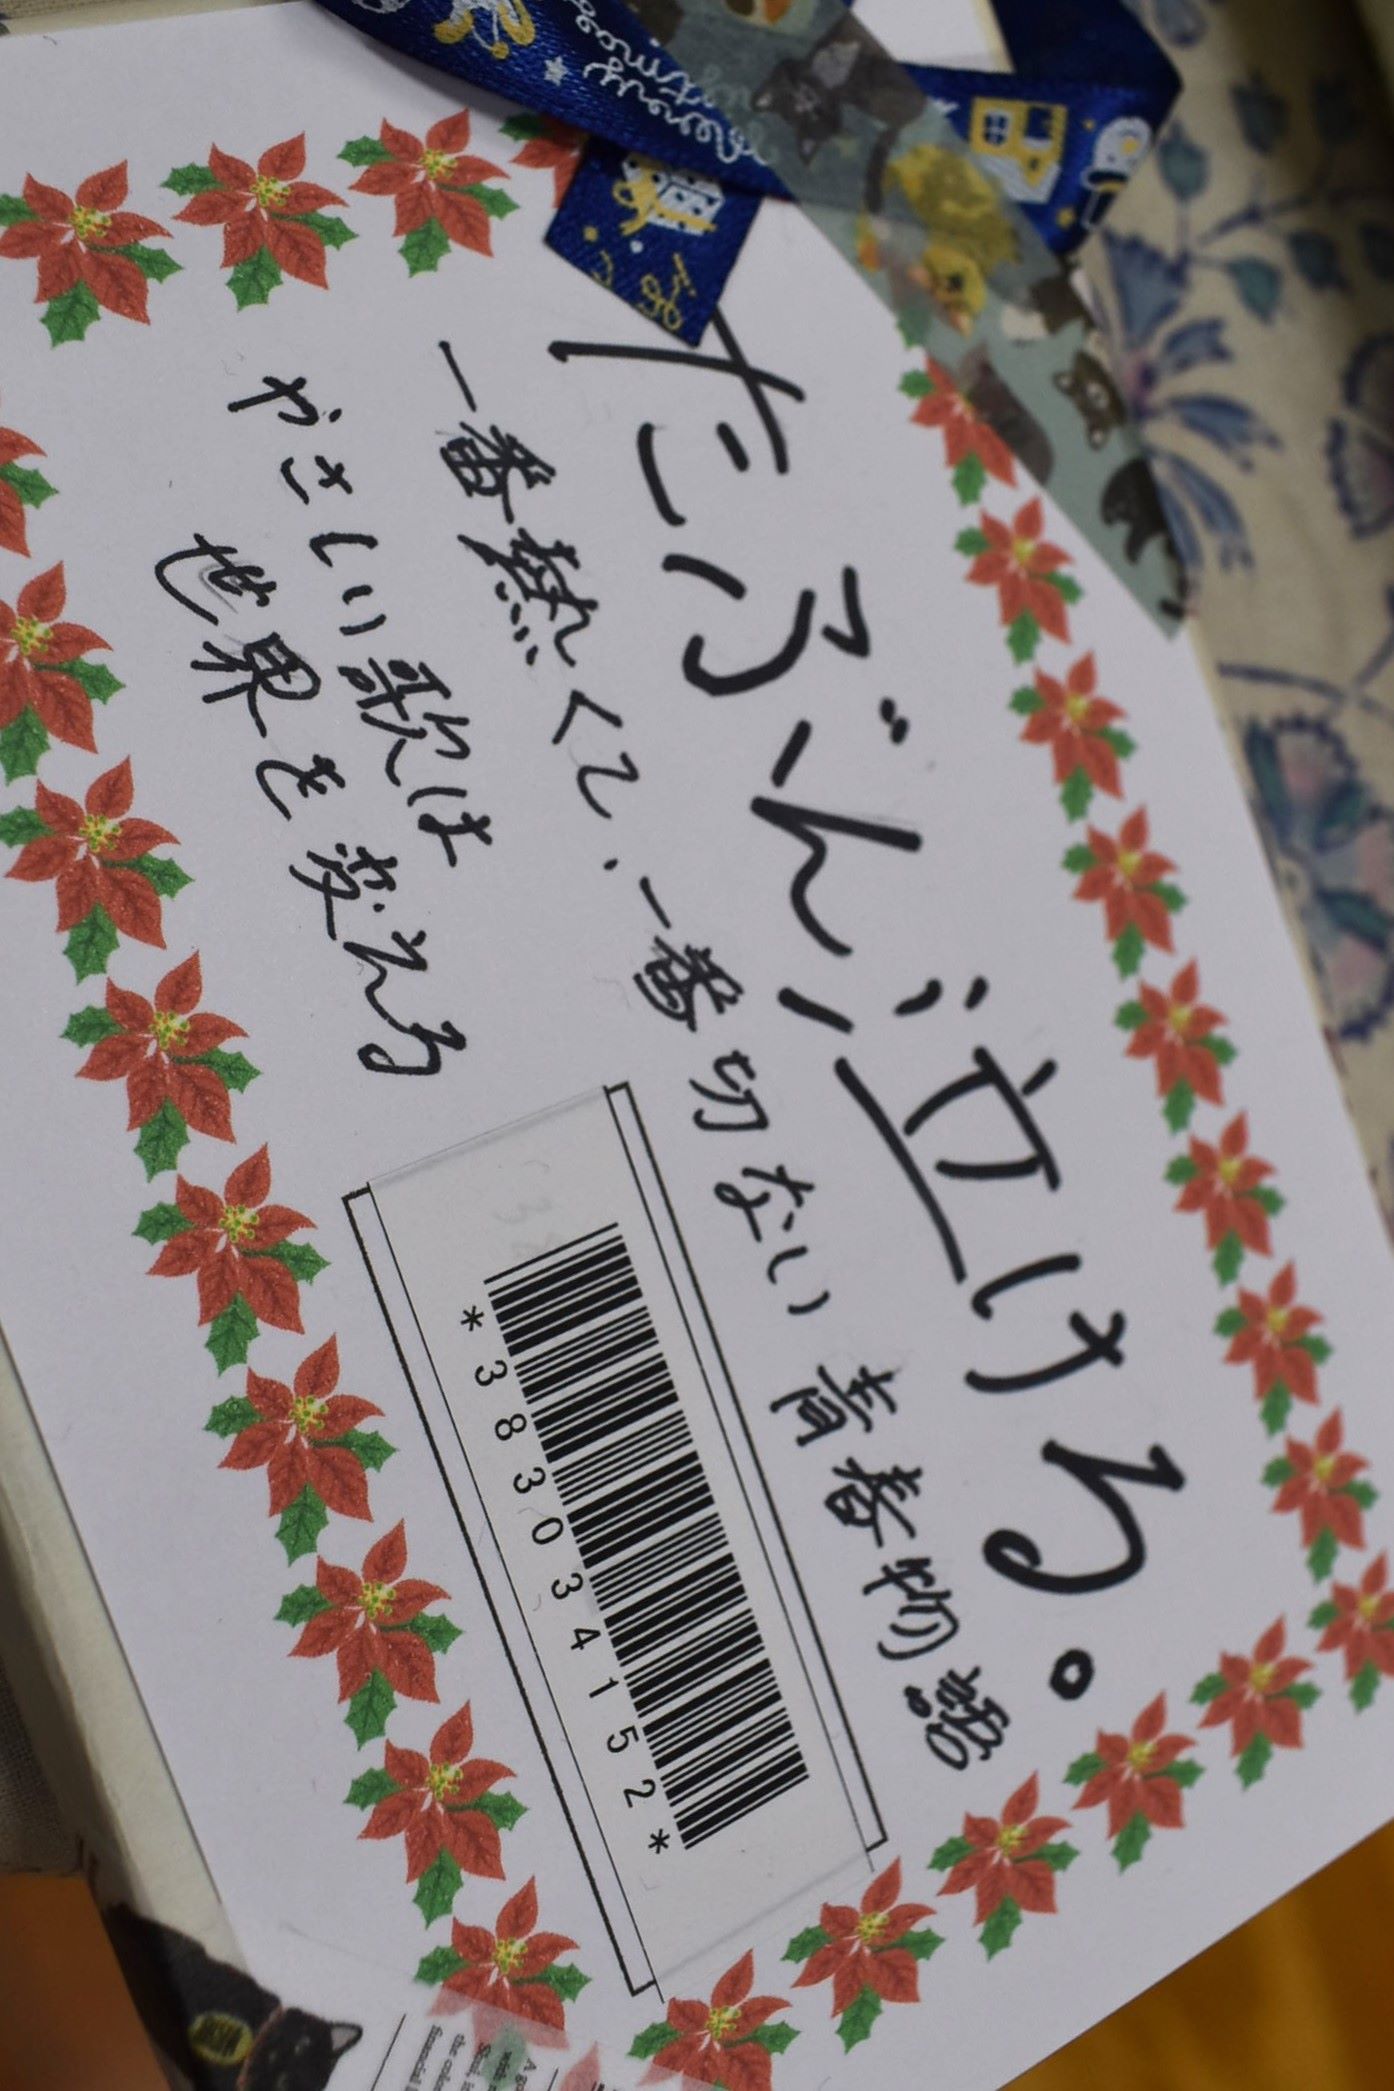 たぶん泣ける。
一番熱くて、一番切ない青春物語
やさしい歌は
世界を変える
*3830341 52*